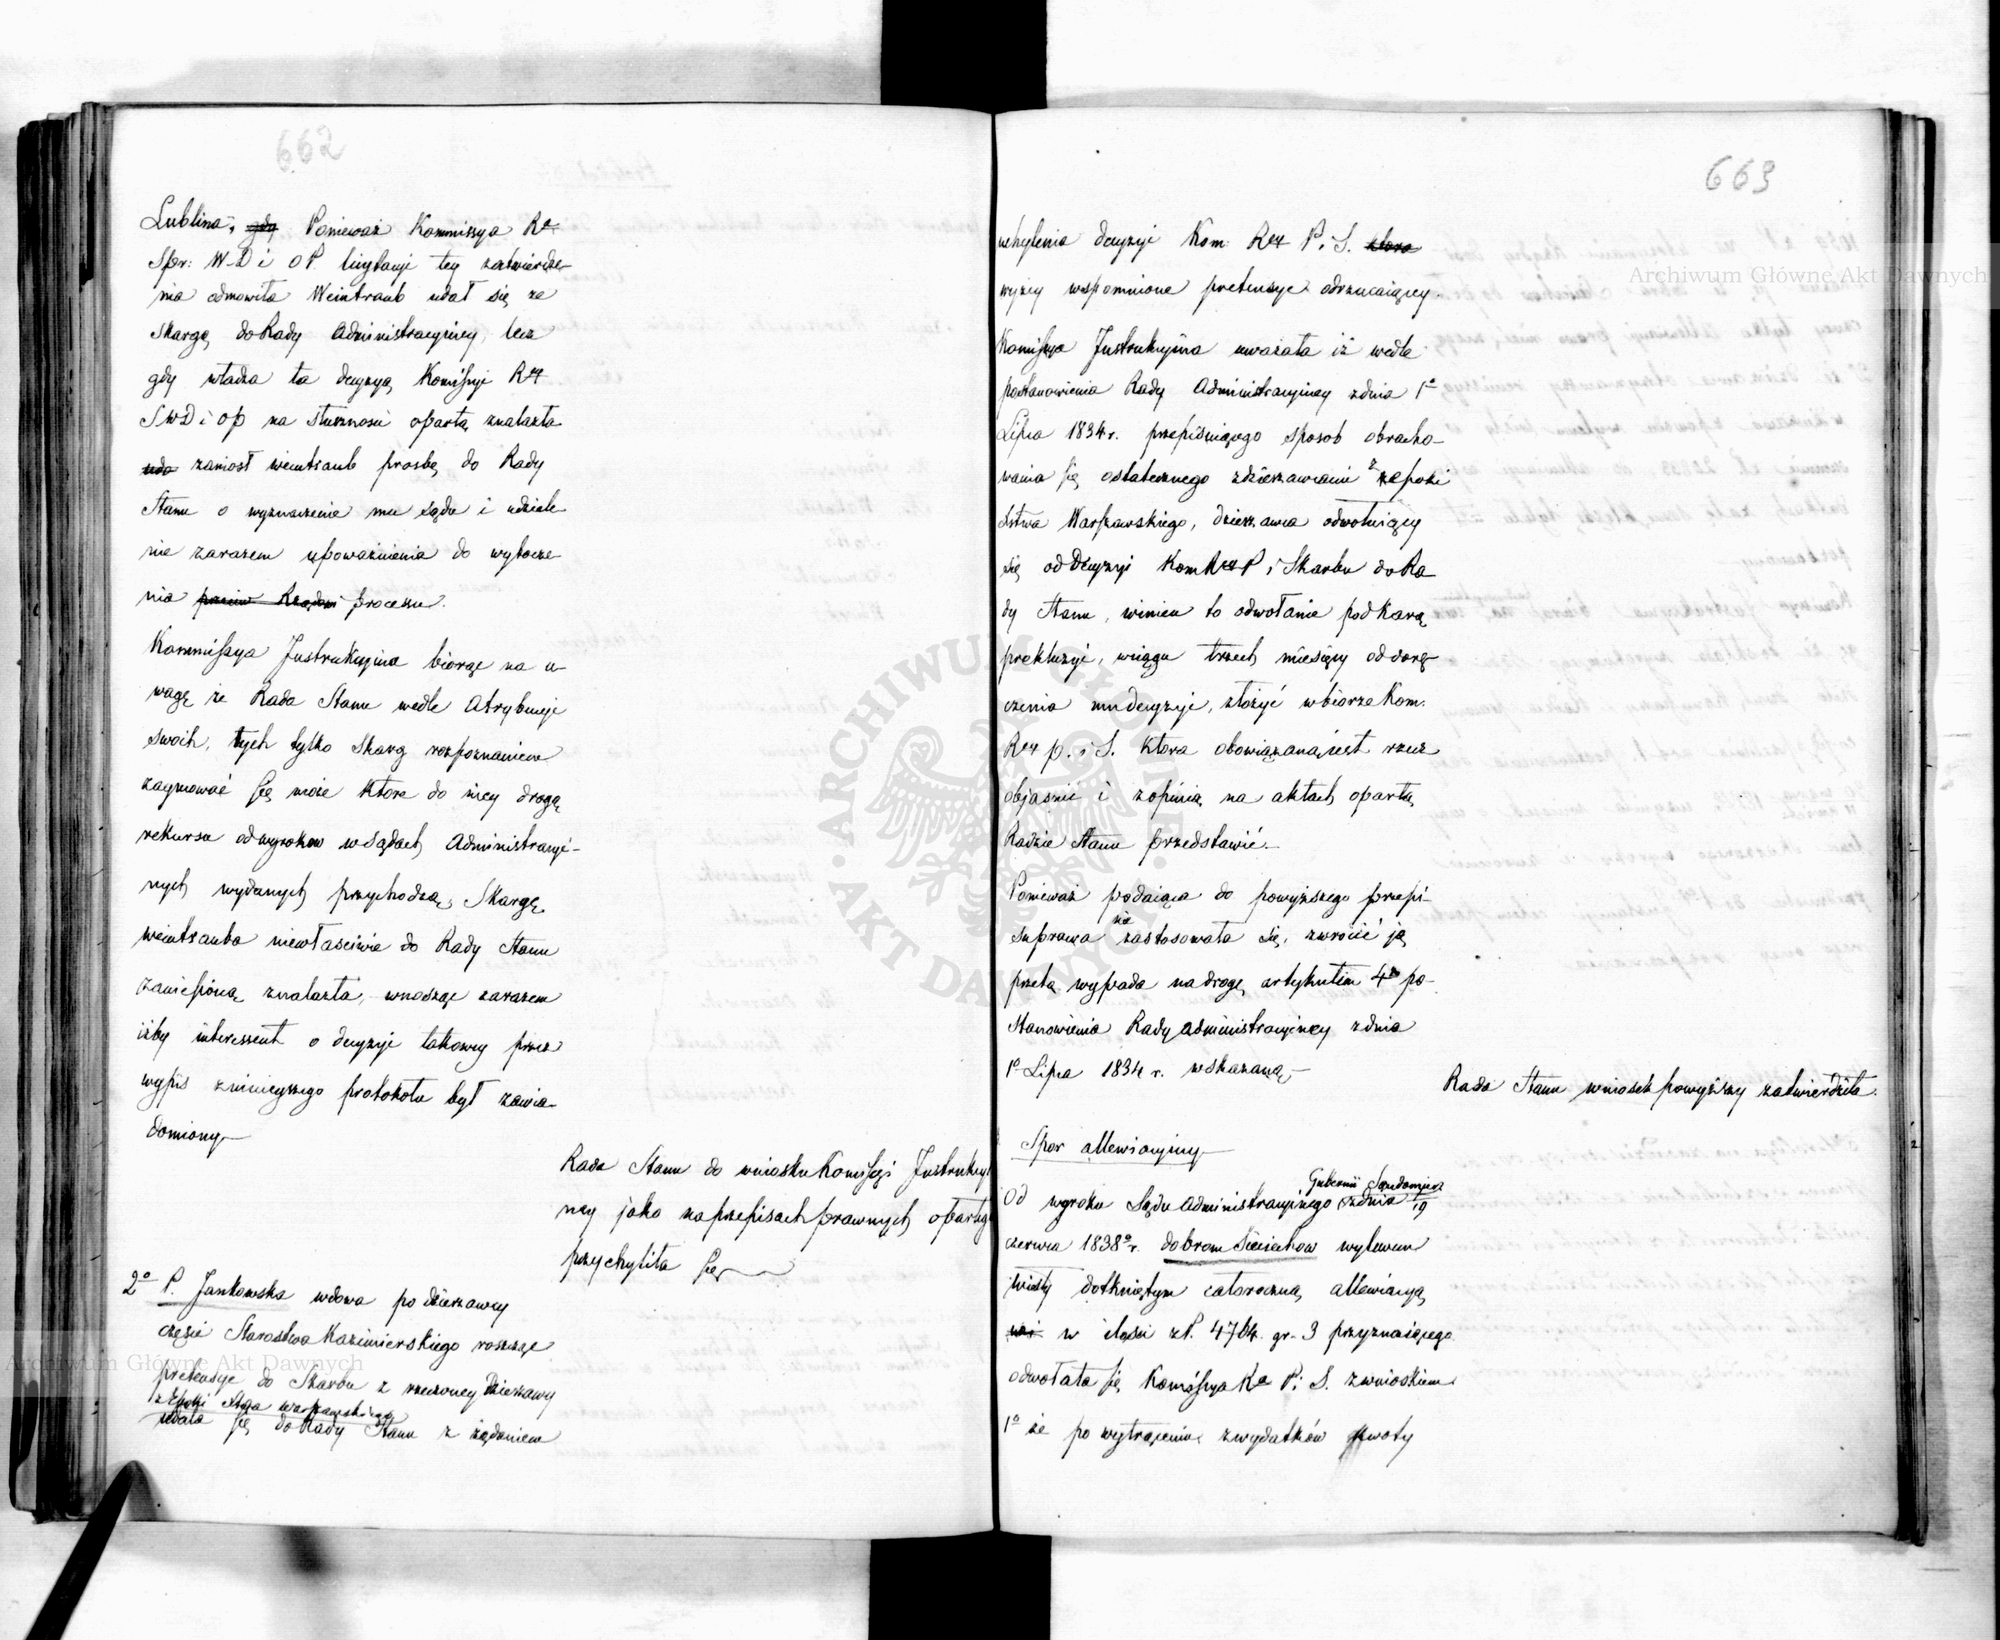 662
Lublina, gdy Ponieważ Kommissya Ra
Spr: W D i OP. licytacyi tey zatwierdze-
nia odmowiła Weintraub udał się ze
skargą do Rady Administracyjney, lecz
gdy władza ta decyzyą Komissyi Rzą
S W D i OP na słuszności opartą znalazła
uda zaniosł weintraub prosbę do Rady
Stanu o wyznaczenie mu sądu i udziele
nie zarazem upoważnienia do wytocze
nia przeciw Rządowi processu.
Kommissya Instrukcyina biorąc na u-
wagę że Rada Stanu wedle atrybucyi
swoich, tych tylko skarg rozpoznaniem
zaymować się może które do niey drogą
rekursu od wyrokow w Sądach Administracyi-
nych wydanych przychodzą, Skargę
weintrauba niewłaściwie do Rady Stanu
zaniesioną znalazła, wnosząc zarazem
iżby interessent o decyzyi takowey przez
wypis z niniejszego protokołu był zawia-
domiony.
Rada Stanu do wniosku Komissyi Instrukcyi
ney jako na przepisach prawnych opartego
przychyliła się
2o P. Jankowska wdowa po dzierzawcy
części Starostwa Kazimierskiego rosząc
pretensye do Skarbu z rzeczoney Dzierzawy
z Epoki Xtwa Warszawskiego
udała się do Rady Stanu z żądaniem
663
uchylenia decyzyi Kom: Rzą P. i S. ktora
wyżey wspomnione pretensye odrzucaiącey.
Komissya Instrukcyina uważała iż wedle
postanowienia Rady Administracyiney z dnia 1o
Lipca 1834 r. przepisuiącego sposob obracho-
wania się ostatecznego z dzierzawcami z epoki
Xstwa Warszawskiego, dzierzawca odwołuiący
się od Decyzyi Kom Rzą P i Skarbu do Ra
dy Stanu, winien to odwołanie pod karą
prekluzyi, w ciągu trzech miesięcy od dorę-
czenia mu decyzyi, złożyć w biorze Kom.
Rzą P. i S. ktora obowiązana iest rzecz
objasnić i z opinią na aktach opartą
Radzie Stanu przedstawić.
Ponieważ podaiąca do powyższego przepi-
su prawa nie zastosowała się, zwrocić ją
przeto wypada na drogę artykułem 4m po-
stanowienia Rady administracyiney z dnia
1o Lipca 1834 r. wskazaną.
Rada Stanu wniosek powyższy zatwierdziła.
Spor allewiacyiny
Gubernii Sandomierz
Od wyroku Sądu Administracyinego z dnia 7/19
czerwca 1838o r. dobrom Sieciechow wylewem
Wisły dotkniętym całoroczną allewiacyą
w ilości zł. 4764. gr. 3 przyznaiącego
odwołała się Komissya Ra P. i S. z wnioskiem
1o że po wytrąceniu z wydatków kwoty